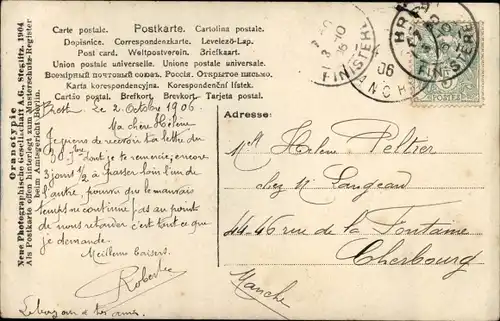 Carte postale. Postkarte. Cartolina postale.
Dopisnice. Correspondenzkarte. Levelező-Lap.
Post card. Weltpostverein. Briefkaart.
Union postale universelle. Unione postale universale.
Всемірный почтовый союзъ. Россія. Открытое письмо.
Karta korespondencyjna. Korespondenční lístek.
Cartão postal. Brefkort. Brevkort. Tarjeta postal.
Oranotypie
Neue Photographische Gesellschaft A.G., Steglitz. 1904
Als Postkarte offen hinterlegt zum Musterschutz-Register
beim Amtsgericht Berlin.
Brest Le 2 Octobre 1906.
Ma chère Hélène
Je viens de recevoir ta lettre du
30 dont je te remercie; encore
3 jours 1/2 à passer loin l'un de
l'autre, pourvu que le mauvais
temps ne continue pas au point
de nous retarder c'est tout ce que
je demande.
Meilleurs baisers.
Robert
Adresse:
Melle Hélène Peltier
chez Mr Langeard
44-46 rue de la Fontaine
Cherbourg
Manche
BREST
FINISTÈRE
FINISTÈRE
06